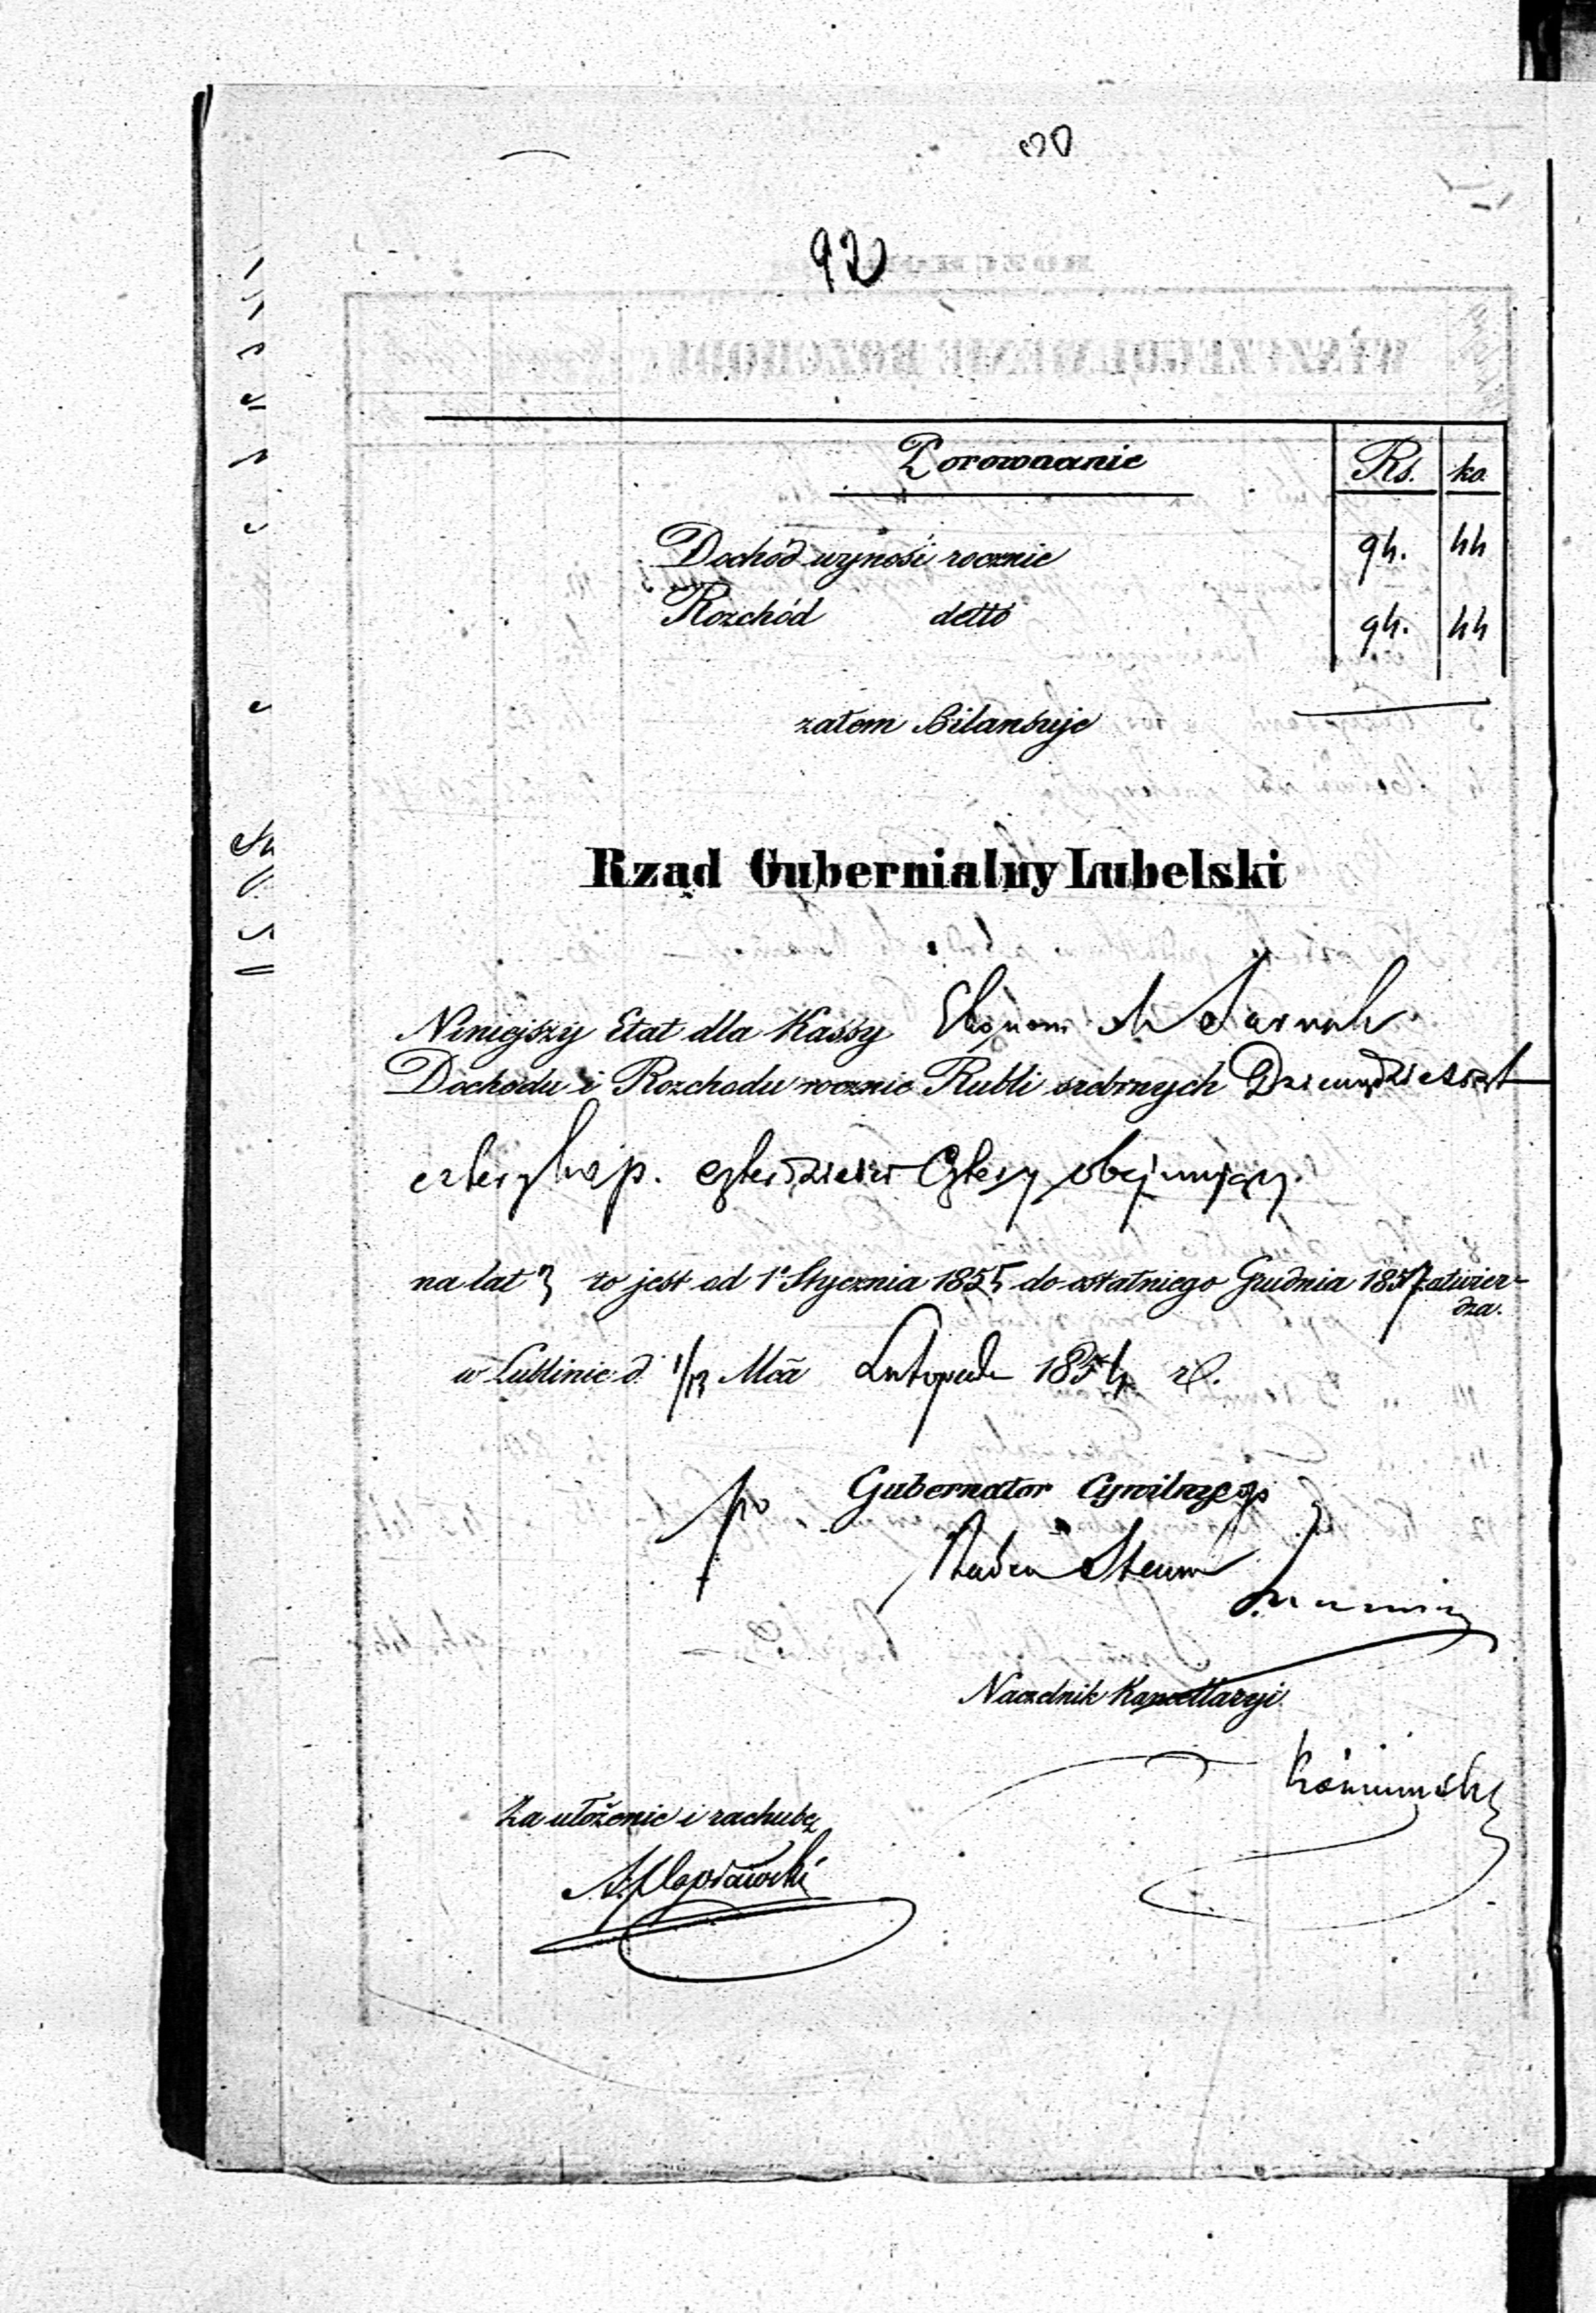 92
Porownanie Rs. ko.
Dochód wynosi rocznie 94. 44
Rozchód detto 94. 44
zatem Bilansuje
Rząd Gubernialny Lubelski
Niniejszy Etat dla Kassy Ekonom M Sarnak
Dochodu i Rozchodu rocznie Rubli srebrnych Dziewiędziesiąt
cztery kop. czterdzieści cztery obejmujący.
na lat 3 to jest od 1º Stycznia 1855 do ostatniego Grudnia 1857 zatwier-
dza.
w Lublinie d. 1/13 Mca Listopada 1854 r.
po Gubernator Cywilnego
Radca Stanu
Naczelnik Kancellaryi
Za ułożenie i rachubę